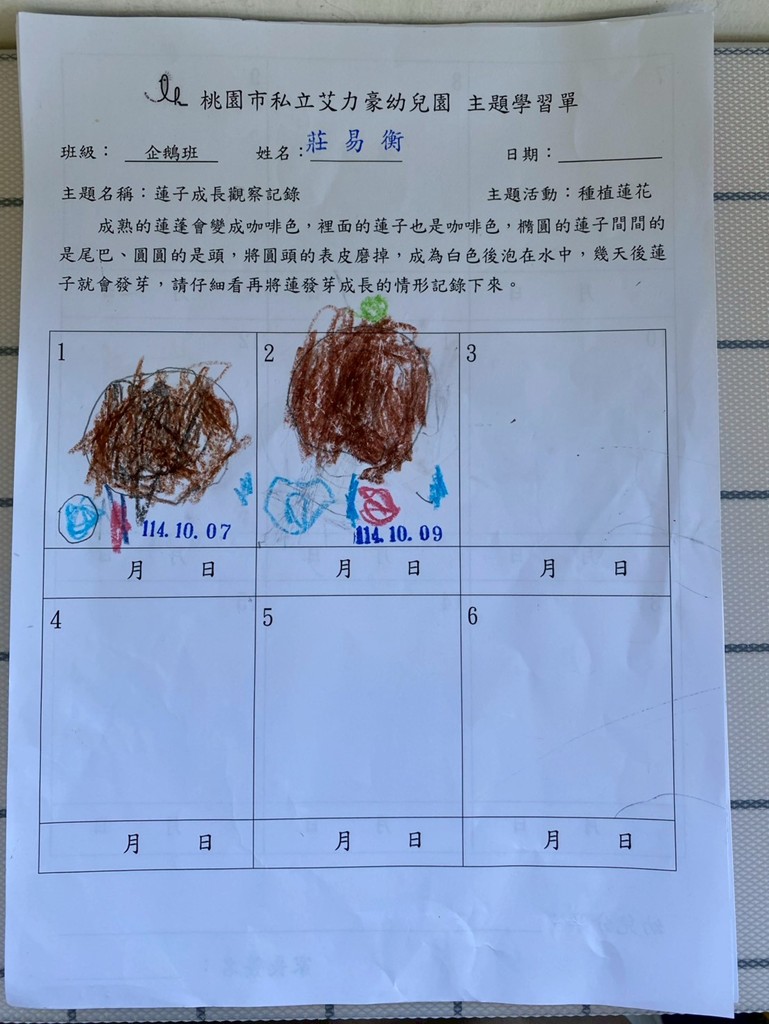 桃園市私立艾力豪幼兒園 主題學習單
班級： 企鵝班 姓名：莊易衡 日期：
主題名稱：蓮子成長觀察記錄 主題活動：種植蓮花
成熟的蓮蓬會變成咖啡色，裡面的蓮子也是咖啡色，橢圓的蓮子間間的
是尾巴、圓圓的是頭，將圓頭的表皮磨掉，成為白色後泡在水中，幾天後蓮
子就會發芽，請仔細看再將蓮發芽成長的情形記錄下來。
1 2 3
114.10.07 114.10.09
月 日 月 日 月 日
4 5 6
月 日 月 日 月 日